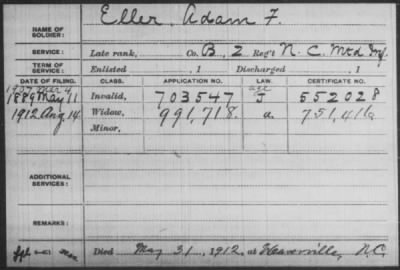 Eller, Adam F.
NAME OF SOLDIER:
SERVICE: Late rank, Co. B, 2 Reg't N. C. Mtd Inf.
TERM OF SERVICE: Enlisted 1 Discharged , 1
DATE OF FILING. CLASS. APPLICATION NO. LAW. CERTIFICATE NO.
1907 Mar 4 age
1889 May 11 Invalid, 703547 J 552028
1912 Aug 14 Widow, 991,718. a. 751,416
Minor,
ADDITIONAL SERVICES:
REMARKS:
Died May 31, 1912, at Weaverville, N.C.